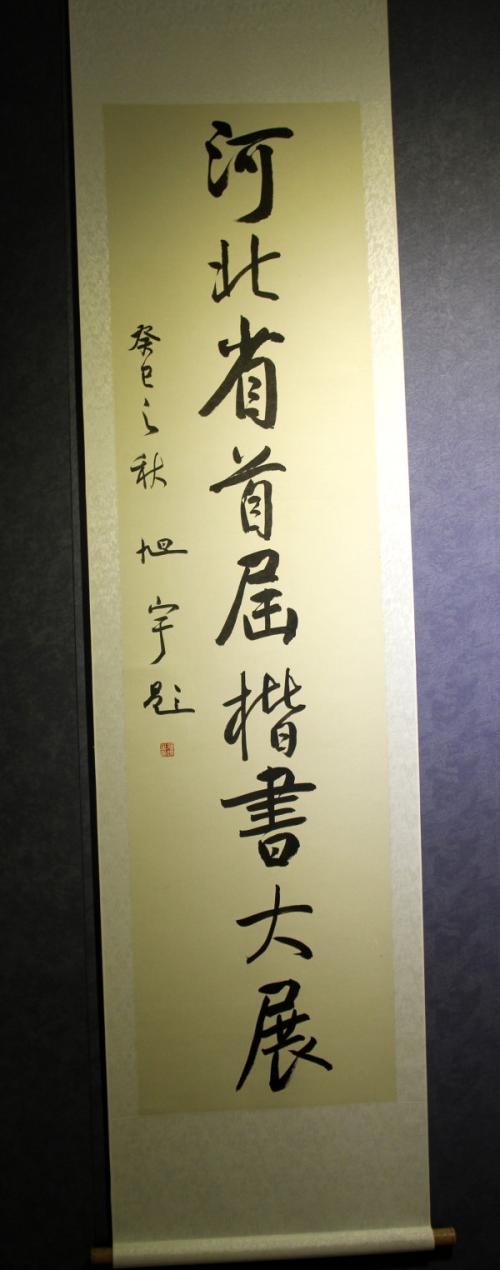 河北省首届楷書大展
癸巳之秋 旭宇题